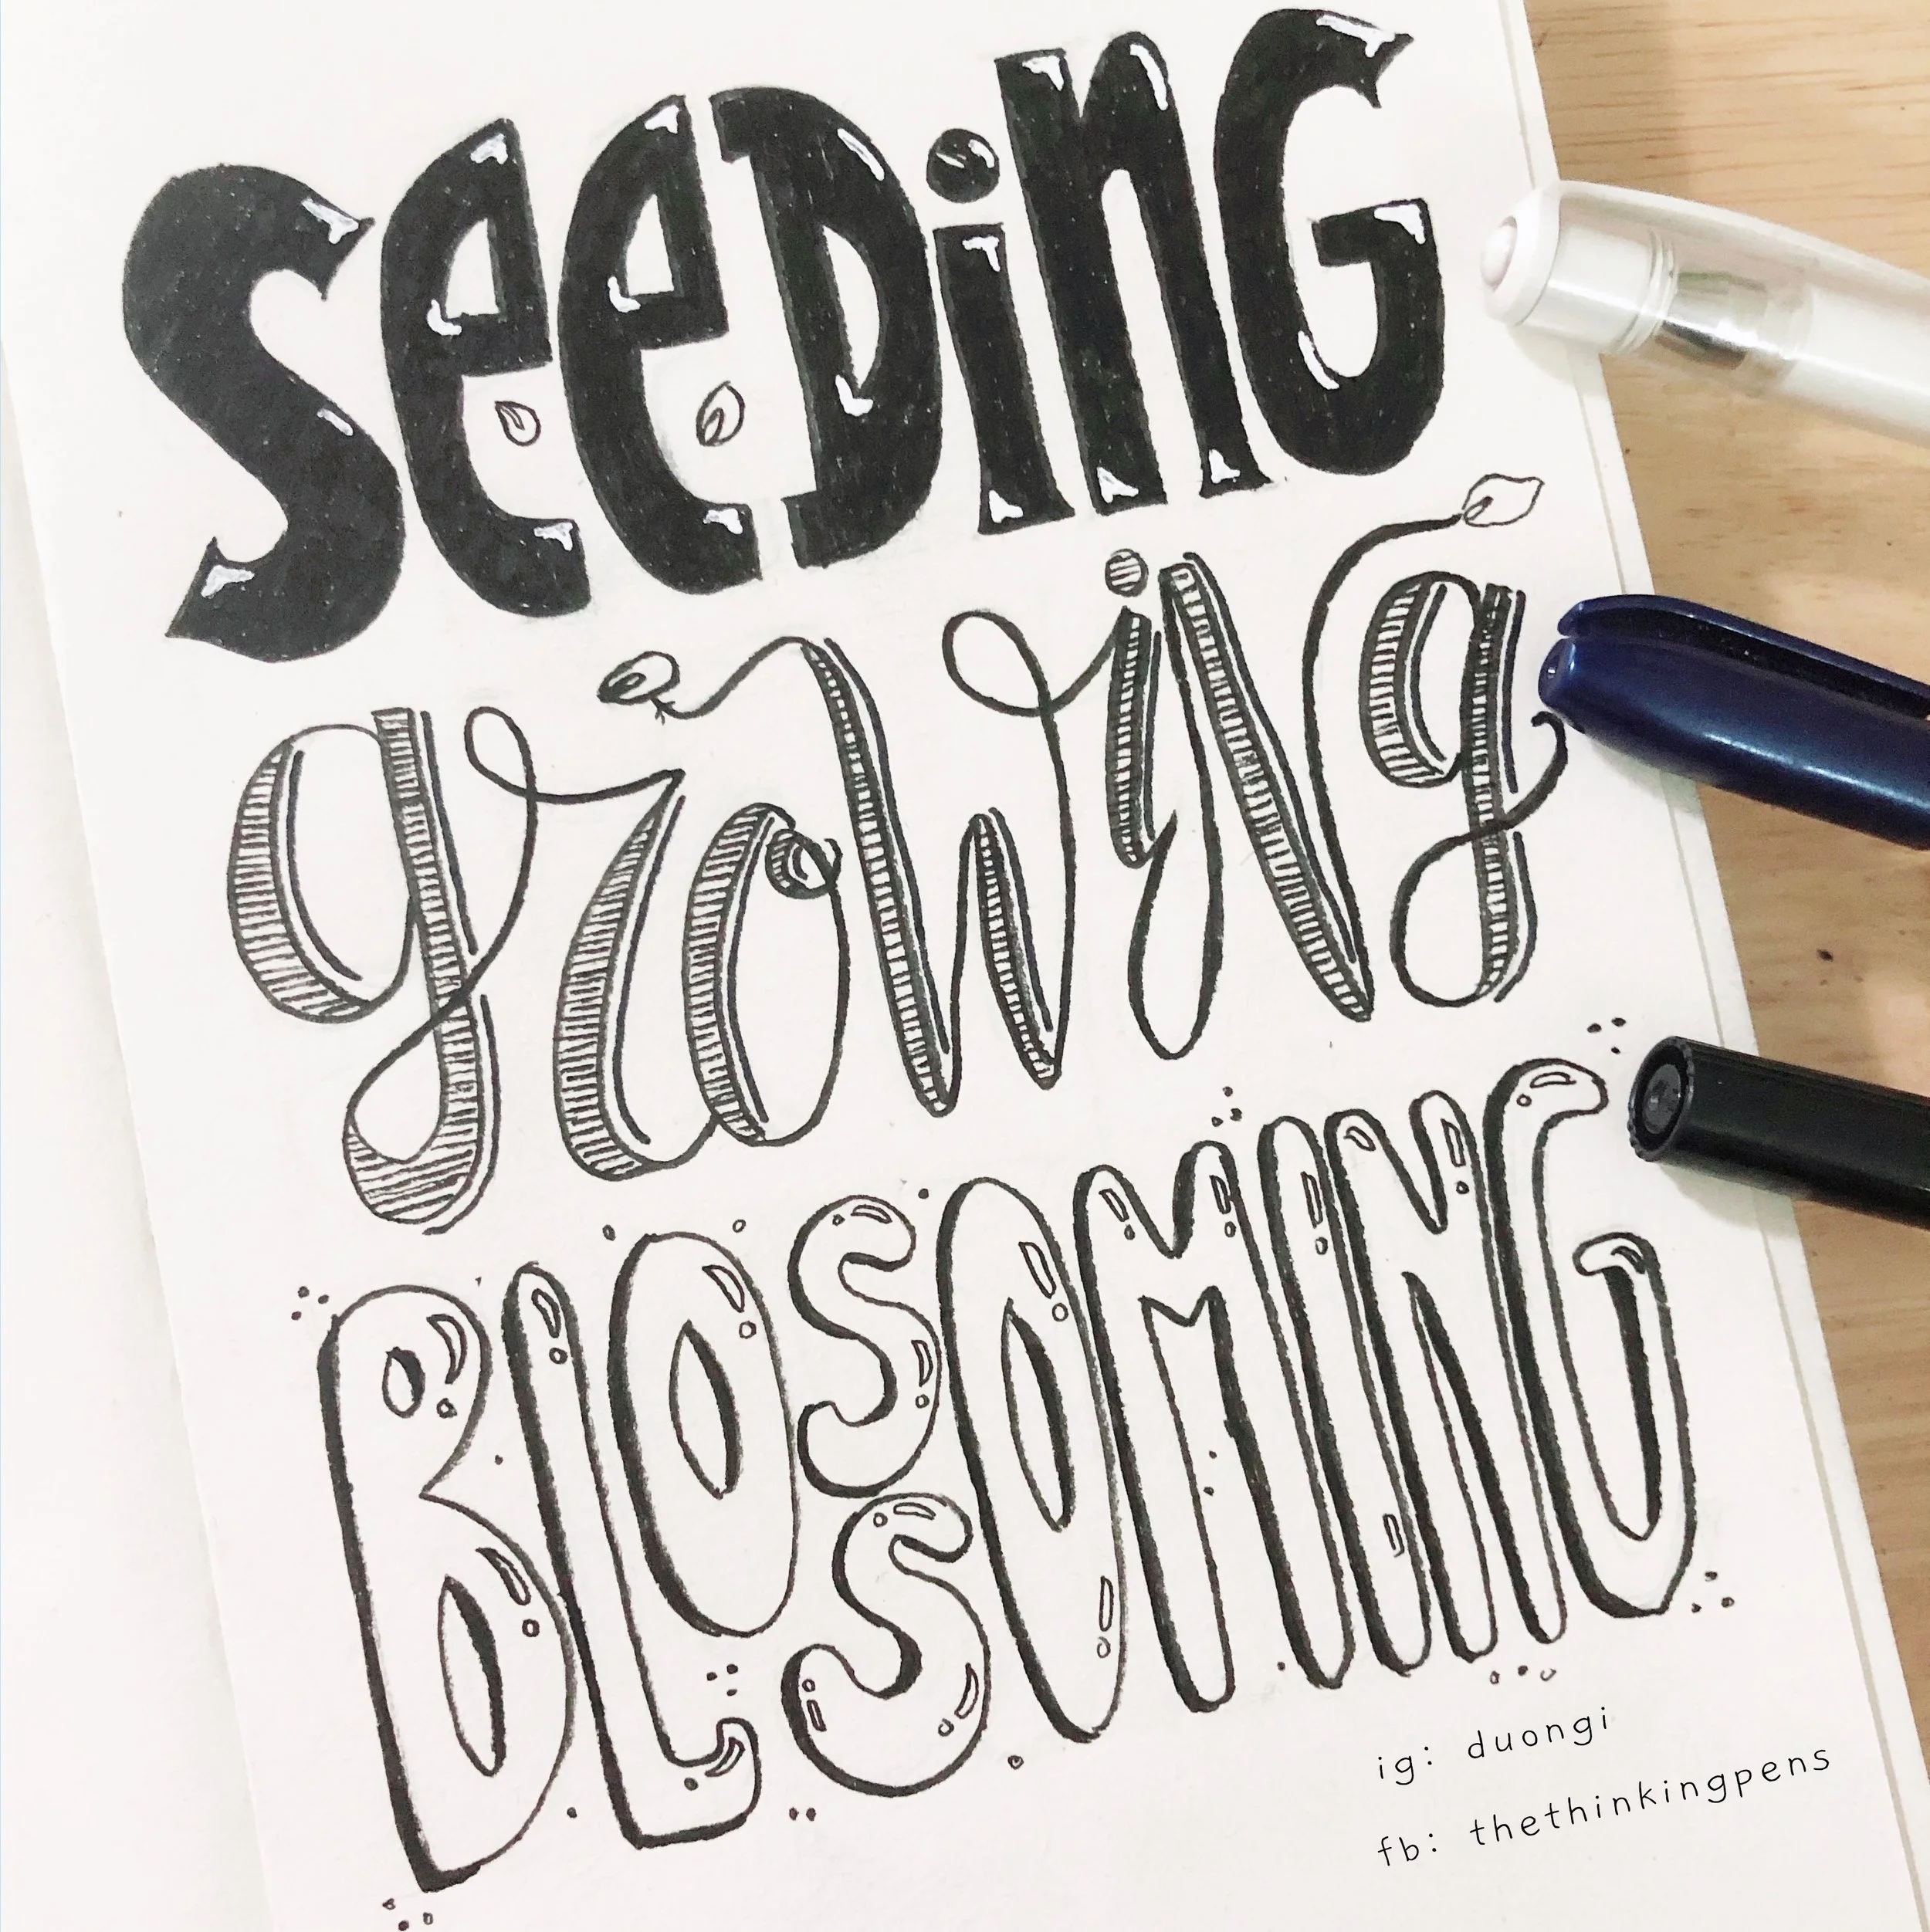 SeeDing
growiNg
BLOSSOMING
ig: duongi
fb: thethinkingpens